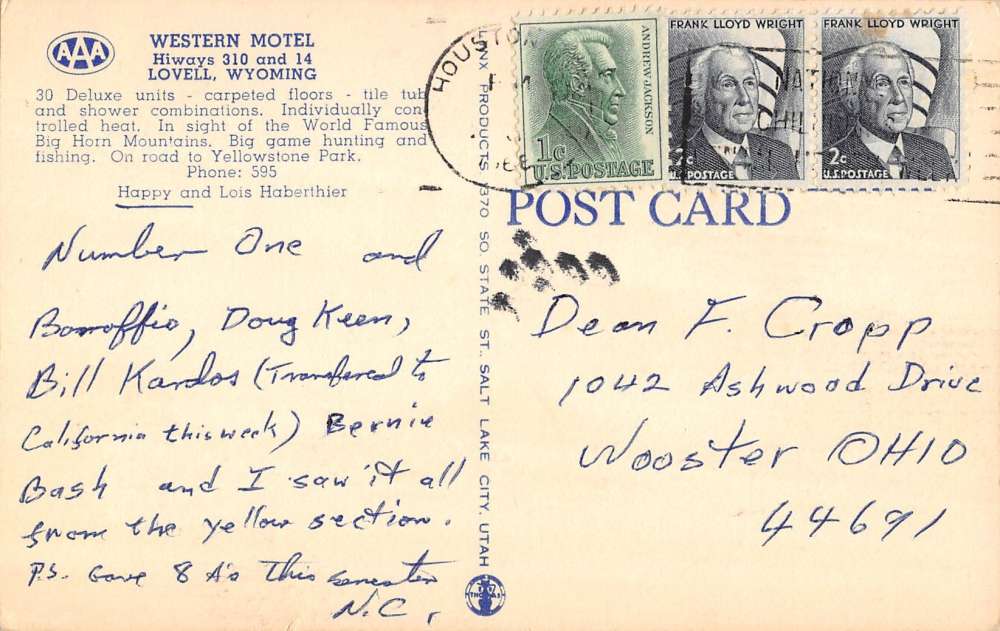 AAA
WESTERN MOTEL
Hiways 310 and 14
LOVELL, WYOMING
30 Deluxe units - carpeted floors - tile tub
and shower combinations. Individually con-
trolled heat. In sight of the World Famous
Big Horn Mountains. Big game hunting and
fishing. On road to Yellowstone Park.
Phone: 595
Happy and Lois Haberthier
Number One and
Bonoffio, Doug Keen,
Bill Kardos (Transfered to
California this week) Bernie
Bash and I saw it all
from the yellow section.
P.S. Gave 8 A's this semester
N.C.
PRODUCTS 1370 SO. STATE ST., SALT LAKE CITY, UTAH
THOMAS
HOUSTON
ANDREW JACKSON
1c
U.S. POSTAGE
FRANK LLOYD WRIGHT
2c
U.S. POSTAGE
FRANK LLOYD WRIGHT
2c
U.S. POSTAGE
POST CARD
Dean F. Cropp
1042 Ashwood Drive
Wooster OHIO
44691